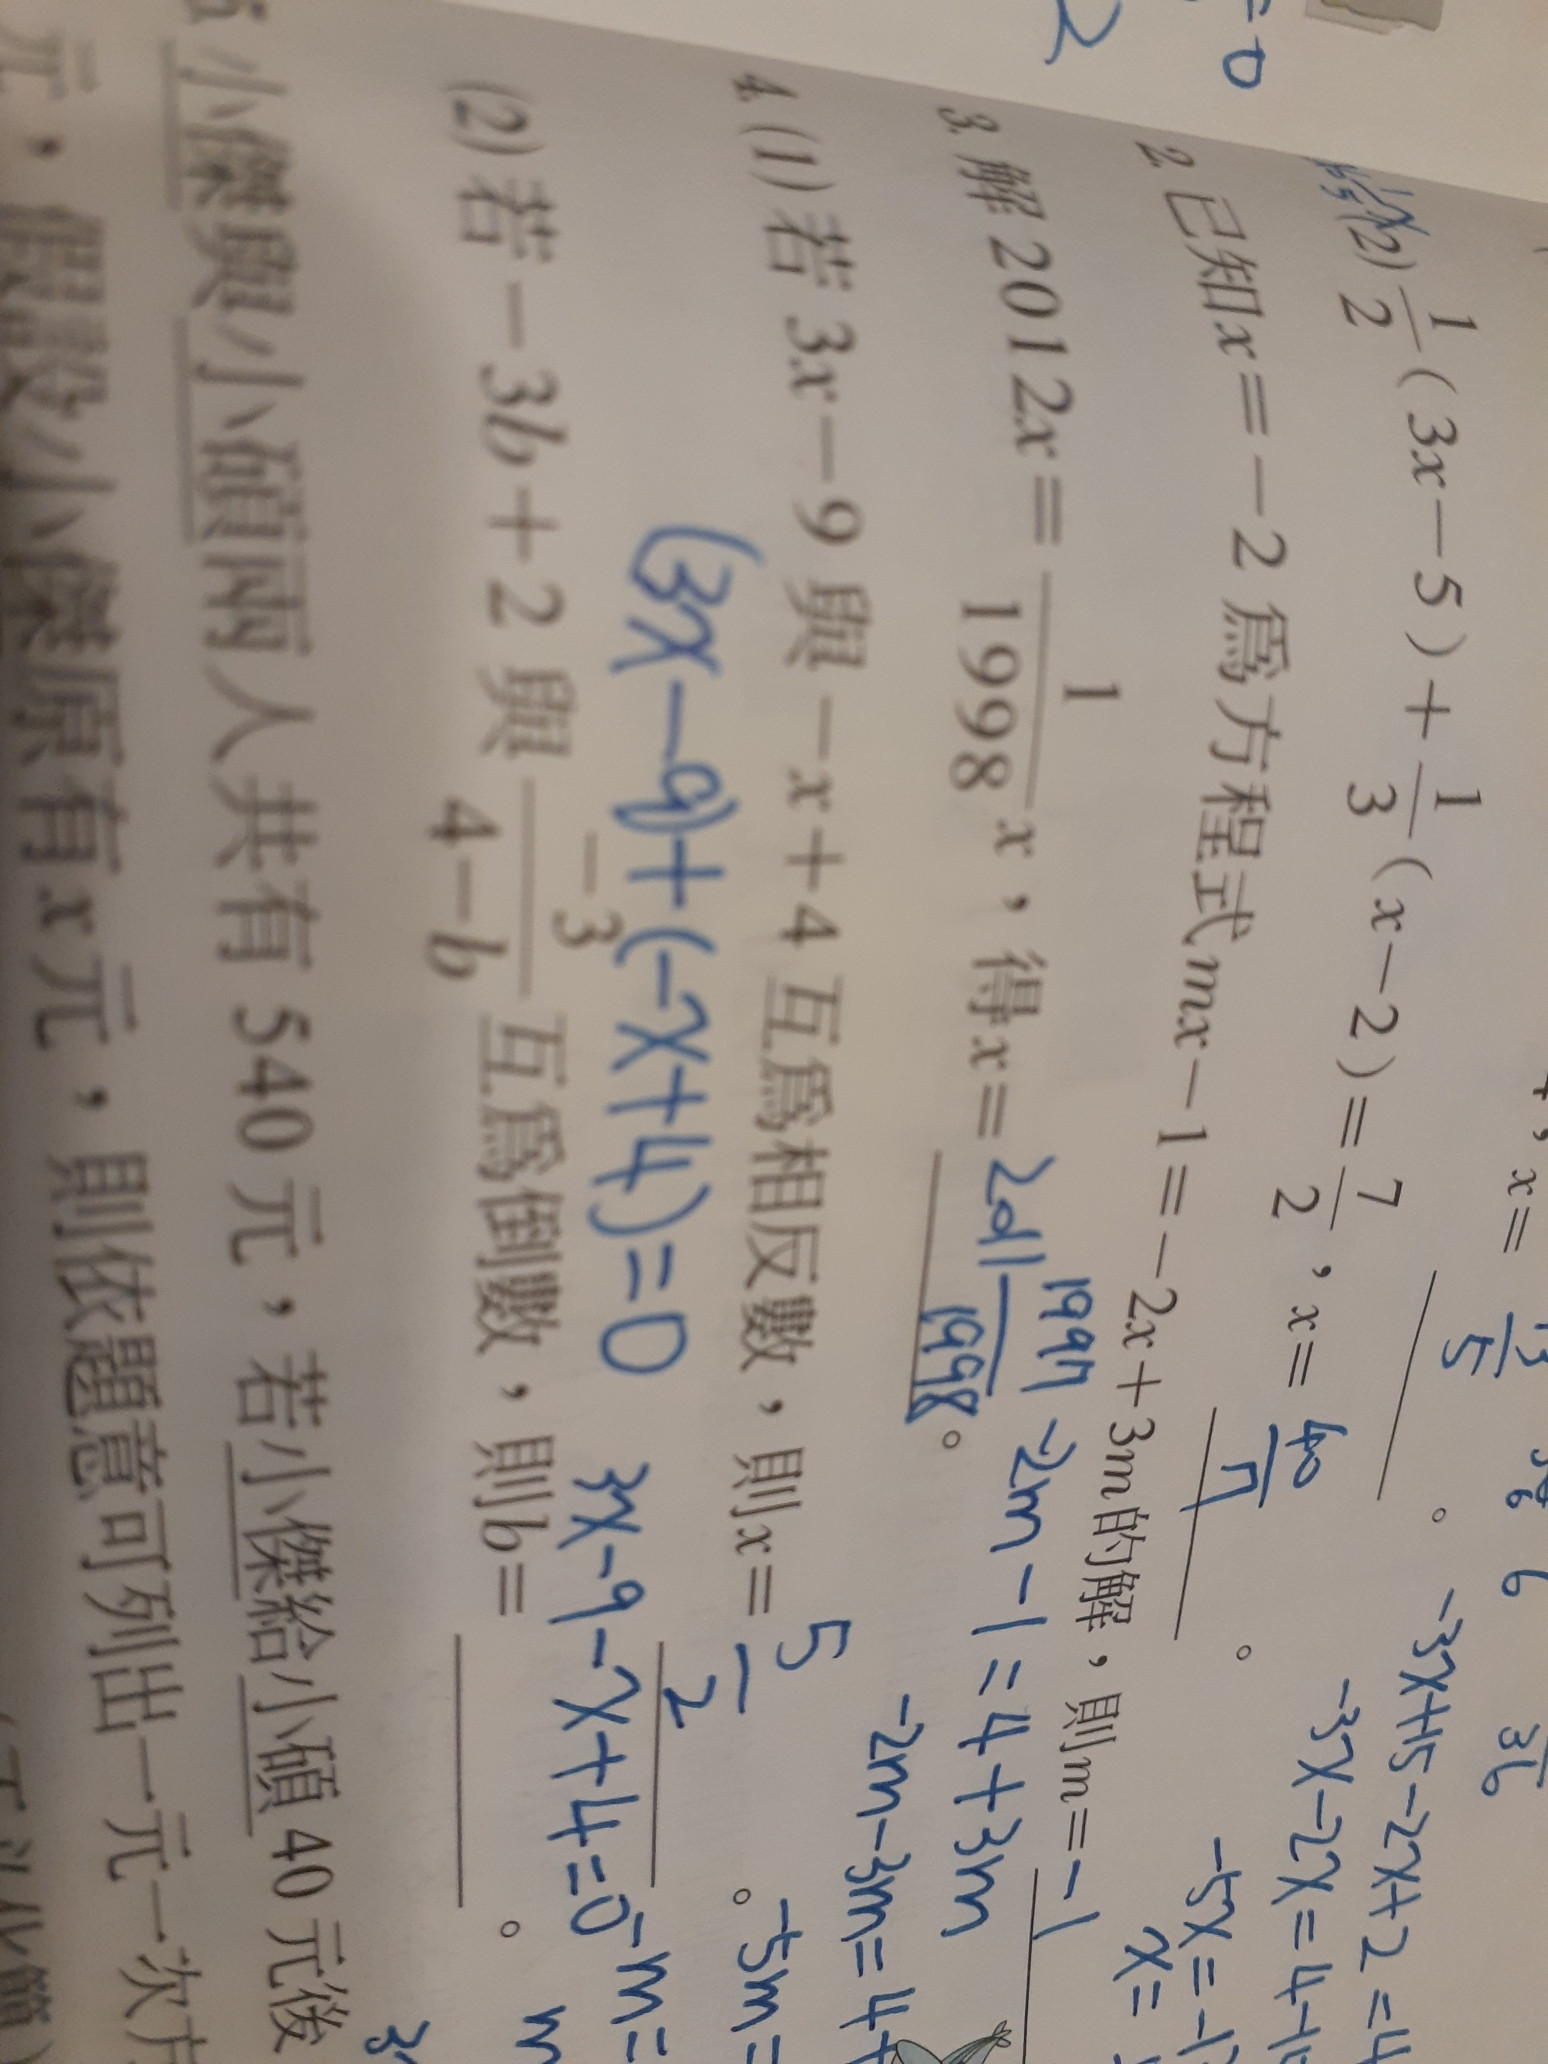 x=
(2) 1/2(3x-5)+1/3(x-2)=7/2，x= 40/11。
-3x+15-2x+2=4
-3x-2x=4-1
-5x=-1
x=
2. 已知x=-2為方程式mx-1=-2x+3m的解，則m=-1
-2m-1=4+3m
-2m-3m=4+
-5m=
-m=
m
3. 解2012x=1/1998 x，得x= 2011 1997/1998。
4. (1) 若3x-9與-x+4互為相反數，則x= 5/2。
(3x-9)+(-x+4)=0
3x-9-x+4=0
(2) 若-3b+2與-3/4-b互為倒數，則b=。
小傑與小碩兩人共有540元，若小傑給小碩40元後
元，假設小傑原有x元，則依題意可列出一元一次方